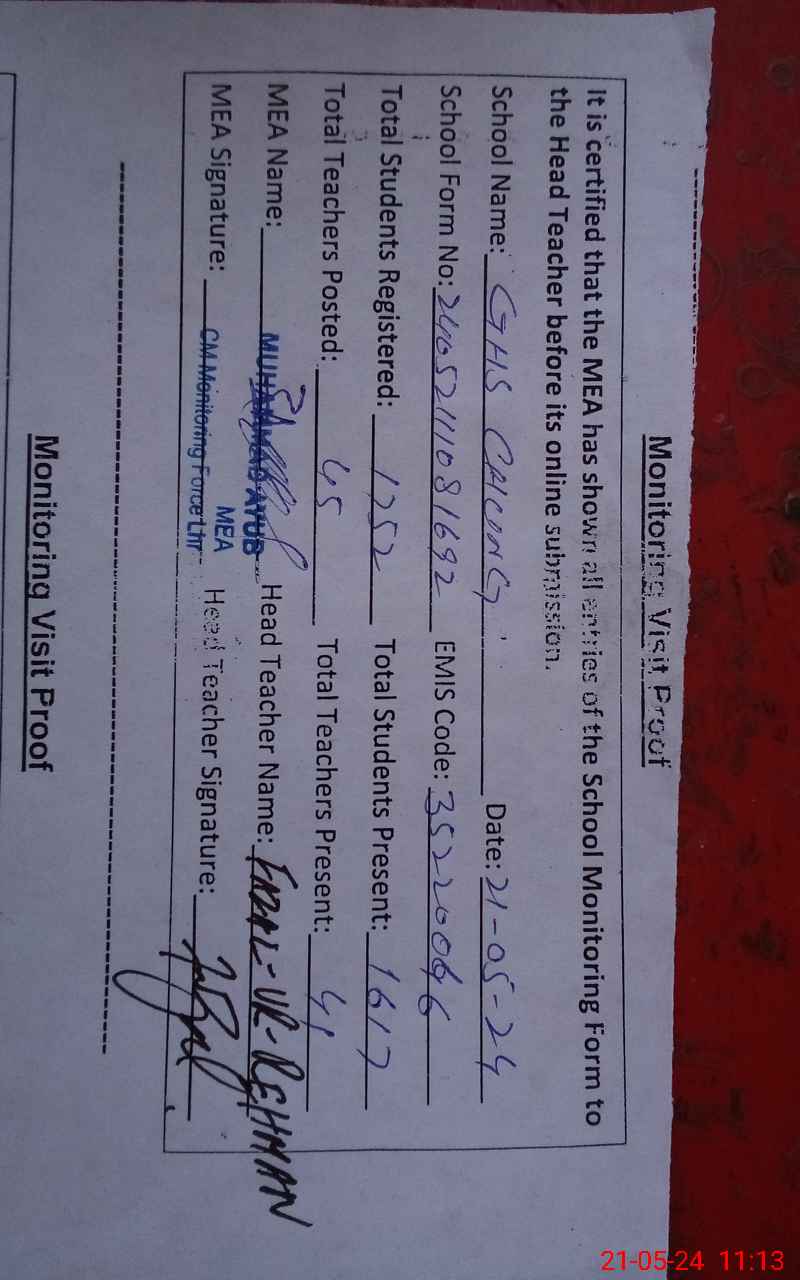 Monitoring Visit Proof
It is certified that the MEA has shown all entries of the School Monitoring Form to
the Head Teacher before its online submission.
School Name: GHS CHUNG Date: 21-05-24
School Form No: EMIS Code: 35220046
Total Students Registered: 1752 Total Students Present: 1617
Total Teachers Posted: 45 Total Teachers Present: 41
MEA Name: MUHAMMAD AYUB Head Teacher Name: FAZAL-UR-REHMAN
MEA
MEA Signature: CM Monitoring Force Lhr Head Teacher Signature:
Monitoring Visit Proof
21-05-24 11:13